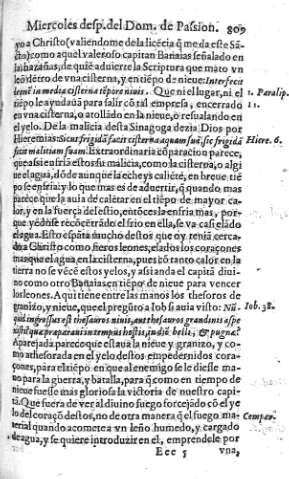 Miercoles desp. del Dom. de Passion. 809
yo a Christo (valiendome de la licẽcia q̃ me da este Sã
cto) como aquel valeroso capitan Banaias señalado en
hazañas, de quiẽ aduierte la Scriptora que mato vn
leõ dẽtro de vna cisterna, y en tiẽpo de nieue: Interfecit
leonẽ in media cisterna tẽpore niuis. Que ni el lugar, ni el
tiẽpo le ayudauã para salir cõ tal empresa, encerrado
en vna cisterna, o atollado en la nieue, o resualando en
el yelo. De la malicia desta Sinagoga dezia Dios por
Hieremias: Sicut frigidã facit cisterna aquam suã, sic frigidã
fecit malitiam suam. Extraordinaria cõparacio parece,
que assi enfria estos su malicia, como la cisterna, o algi
ue el agua, dõde aunque la echeys caliẽte, en breue tiẽ
po se enfria: y lo que mas es de aduertir, q̃ quando mas
parece que la auia de calẽtar en el tiẽpo de mayor ca-
lor, y en la fuerça del estio, entõces la enfria mas, por-
que yẽdose recõcẽtrãdo el frio en ella, se va casi elãdo
el agua. Esto espãta mucho destos que oy teniã cerca-
do a Christo como fieros leones, elados los coraçones
mas que el agua en la cisterna, pues cõ tanto calor en la
tierra no se vẽcẽ estos yelos, y assi anda el capitã diui-
no como otro Banaias en tiẽpo de nieue para vencer
los leones. Aqui tiene entre las manos los thesoros de
granizo, y nieue, que el pregũto a Iob si auia visto: Nũ-
quid ingressus es thesauros niuis, aut thesauros grandinis aspe
xisti, quæ præparaui in tempus hostis, in diẽ belli, & pugnæ?
Aparejada parece que estaua la nieue y granizo, y co-
mo athesorada en el yelo destos empedernidos cora-
çones, para el tiẽpo en que al enemigo se le diesse ma-
no para la guerra, y batalla, para q̃ como en tiempo de
nieue fuesse mas gloriosa la victoria de nuestro capi-
tã. Que fuera de ver al diuino fuego forcejãdo cõ el ye
lo del coraçõ destos, no de otra manera q̃ el fuego ma-
terial quando acomete a vn leño humedo, y cargado
de agua, y se quiere introduzir en el, emprendele por
Eee 5 vna,
1. Paralip.
11.
Hiere. 6.
Iob. 38.
Compar.